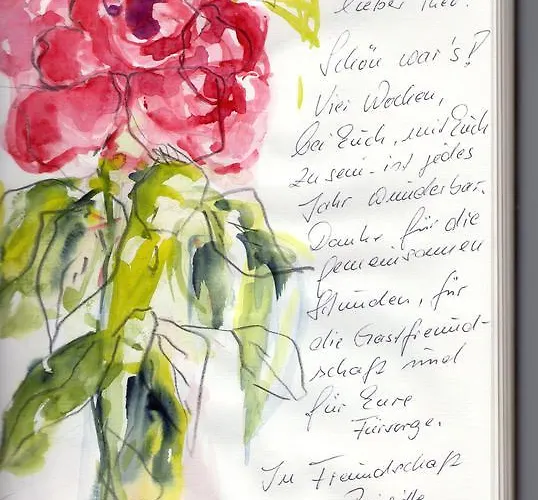 lieber Theo!
Schön war's!
Vier Wochen,
bei Euch, mit Euch
zu sein - ist jedes
Jahr wunderbar.
Danke für die
gemeinsamen
Stunden, für
die Gastfreund-
schaft und
für Eure
Fürsorge.
In Freundschaft